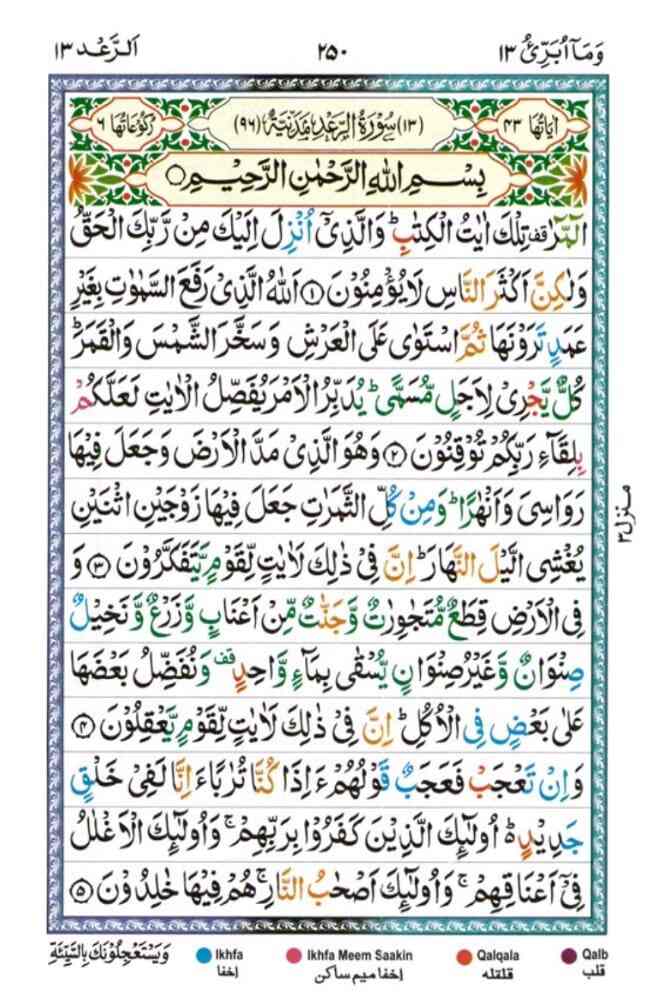 وَمَآ اُبَرِّئُ ١٣ ٢٥٠ اَلرَّعْد ١٣
اٰيَاتُهَا ٤٣ (١٣) سُوْرَةُ الرَّعْدِ مَدَنِيَّةٌ (٩٦) رُكُوْعَاتُهَا ٦
بِسْمِ اللّٰهِ الرَّحْمٰنِ الرَّحِيْمِ ○
الٓمّٓرٰ قف تِلْكَ اٰيٰتُ الْكِتٰبِ ؕ وَالَّذِيْۤ اُنْزِلَ اِلَيْكَ مِنْ رَّبِّكَ الْحَقُّ
وَلٰكِنَّ اَكْثَرَ النَّاسِ لَا يُؤْمِنُوْنَ ۝١ اَللّٰهُ الَّذِيْ رَفَعَ السَّمٰوٰتِ بِغَيْرِ
عَمَدٍ تَرَوْنَهَا ثُمَّ اسْتَوٰى عَلَى الْعَرْشِ وَسَخَّرَ الشَّمْسَ وَالْقَمَرَ ؕ
كُلٌّ يَّجْرِيْ لِاَجَلٍ مُّسَمًّى ؕ يُدَبِّرُ الْاَمْرَ يُفَصِّلُ الْاٰيٰتِ لَعَلَّكُمْ
بِلِقَآءِ رَبِّكُمْ تُوْقِنُوْنَ ۝٢ وَهُوَ الَّذِيْ مَدَّ الْاَرْضَ وَجَعَلَ فِيْهَا
رَوَاسِيَ وَاَنْهٰرًا ؕ وَمِنْ كُلِّ الثَّمَرٰتِ جَعَلَ فِيْهَا زَوْجَيْنِ اثْنَيْنِ
يُغْشِى الَّيْلَ النَّهَارَ ؕ اِنَّ فِيْ ذٰلِكَ لَاٰيٰتٍ لِّقَوْمٍ يَّتَفَكَّرُوْنَ ۝٣ وَ
فِى الْاَرْضِ قِطَعٌ مُّتَجٰوِرٰتٌ وَّجَنّٰتٌ مِّنْ اَعْنَابٍ وَّزَرْعٌ وَّنَخِيْلٌ
صِنْوَانٌ وَّغَيْرُ صِنْوَانٍ يُّسْقٰى بِمَآءٍ وَّاحِدٍ قف وَنُفَضِّلُ بَعْضَهَا
عَلٰى بَعْضٍ فِى الْاُكُلِ ؕ اِنَّ فِيْ ذٰلِكَ لَاٰيٰتٍ لِّقَوْمٍ يَّعْقِلُوْنَ ۝٤
وَاِنْ تَعْجَبْ فَعَجَبٌ قَوْلُهُمْ ءَاِذَا كُنَّا تُرٰبًا ءَاِنَّا لَفِيْ خَلْقٍ
جَدِيْدٍ ؕ اُولٰٓئِكَ الَّذِيْنَ كَفَرُوْا بِرَبِّهِمْ ۚ وَاُولٰٓئِكَ الْاَغْلٰلُ
فِيْۤ اَعْنَاقِهِمْ ۚ وَاُولٰٓئِكَ اَصْحٰبُ النَّارِ ۚ هُمْ فِيْهَا خٰلِدُوْنَ ۝٥
منزل ٣
وَيَسْتَعْجِلُوْنَكَ بِالسَّيِّئَةِ
Ikhfa Ikhfa Meem Saakin Qalqala Qalb
اخفا اخفا میم ساکن قلقله قلب